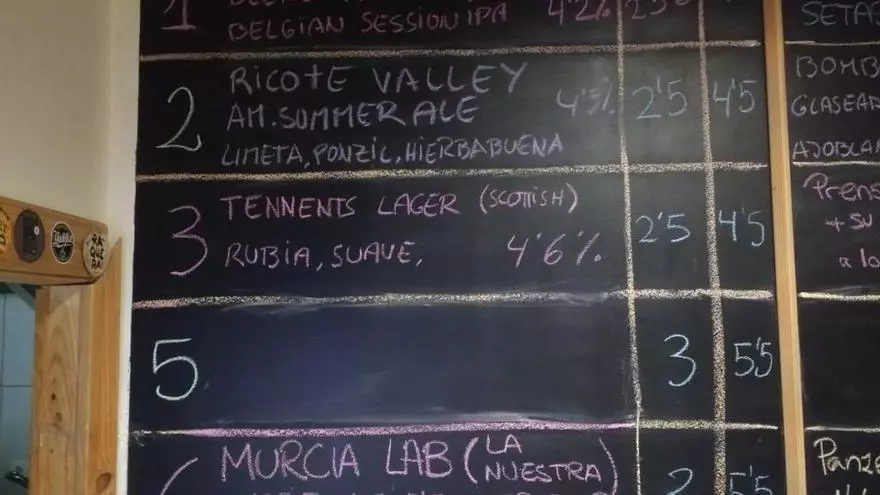 1
BELGIAN SESSION IPA 4'2% 2'5
2 RICOTE VALLEY
AM. SOMMER ALE 4'5% 2'5 4'5
LIMETA, PONZIL, HIERBABUENA
3 TENNENTS LAGER (SCOTTISH) 2'5 4'5
RUBIA, SUAVE, 4'6%
5 3 5'5
MURCIA LAB (LA
NUESTRA) 5'5
SETAS
BOMB
GLASEAR
AJOBLAN
Prens
+ su
a lo
Panze